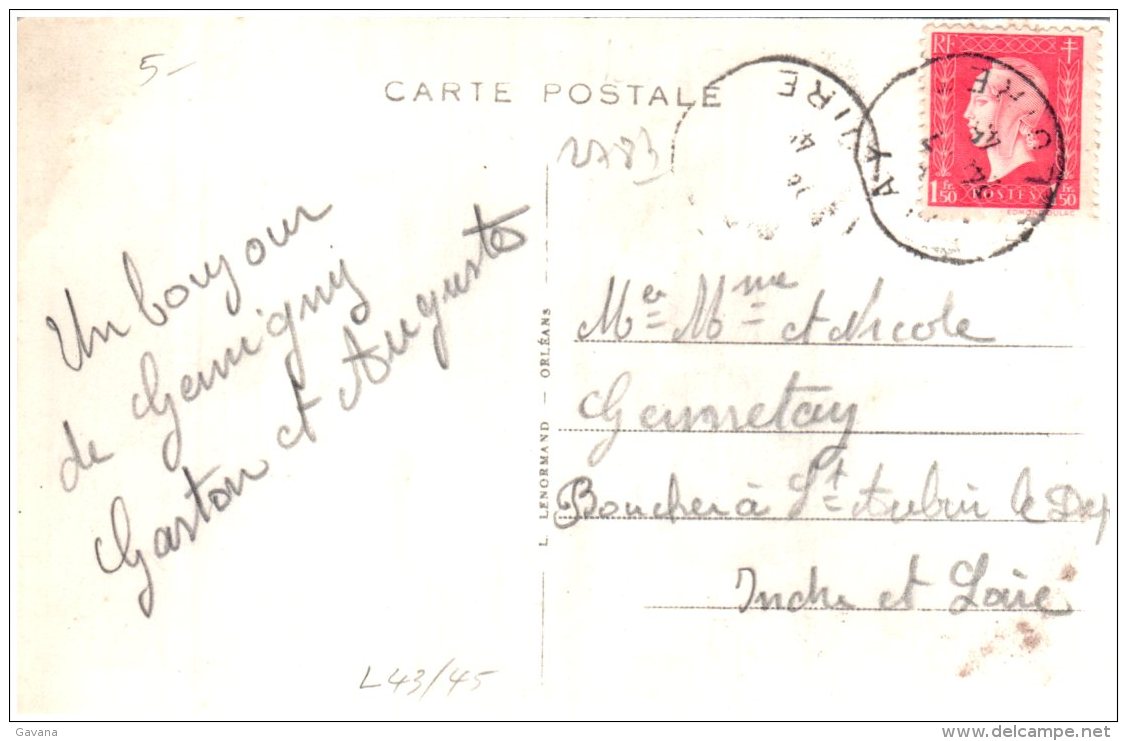 5-
CARTE POSTALE
2783
RF
1 Fr. 50
POSTES
1 Fr. 50
Un bonjour
de Gemigny
Gaston et Auguste
Mer Mme et Nicole
Gemmetay
Boucher à St Aubin le Dep
Indre et Loire
L. LENORMAND — ORLÉANS
L43/45
Gavana
www.delcampe.net